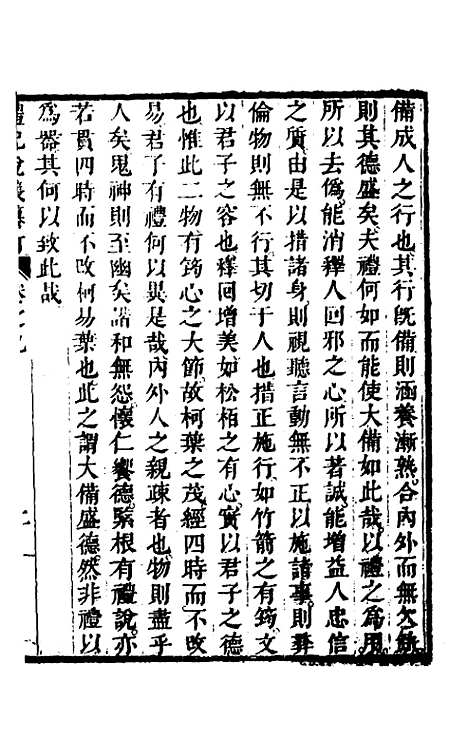 備成人之行也其行既備則涵養漸熟合內外而無欠缺
則其德盛矣夫禮何如而能使大備如此哉以禮之為用
所以去偽能消釋人回邪之心所以著誠能增益人忠信
之質由是以措諸身則視聽言動無不正以施諸事則彞
倫物則無不行其切于人也措正施行如竹箭之有筠文
以君子之容也釋回增美如松栢之有心實以君子之德
也惟此二物有筠心之大節故柯葉之茂經四時而不改
易君子有禮何以異是哉內外人之親疎者也物則盡乎
人矣鬼神則至幽矣諧和無怨懷仁饗德緊根有禮說亦
若貫四時而不改柯易葉也此之謂大備盛德然非禮以
為器其何以致此哉
禮記說義纂訂 卷之九